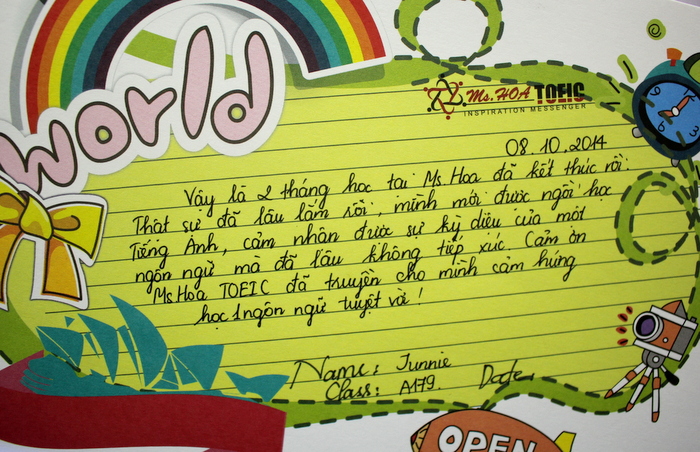 world
Ms. HOA TOEIC
INSPIRATION MESSENGER
08.10.2014
Vậy là 2 tháng học tại Ms.Hoa đã kết thúc rồi.
Thật sự đã lâu lắm rồi, mình mới được ngồi học
Tiếng Anh, cảm nhận được sự kỳ diệu của một
ngôn ngữ mà đã lâu không tiếp xúc. Cảm ơn
Ms Hoa TOEIC đã truyền cho mình cảm hứng
học 1 ngôn ngữ tuyệt vời!
Name: Junnie
Class: A179. Date
OPEN